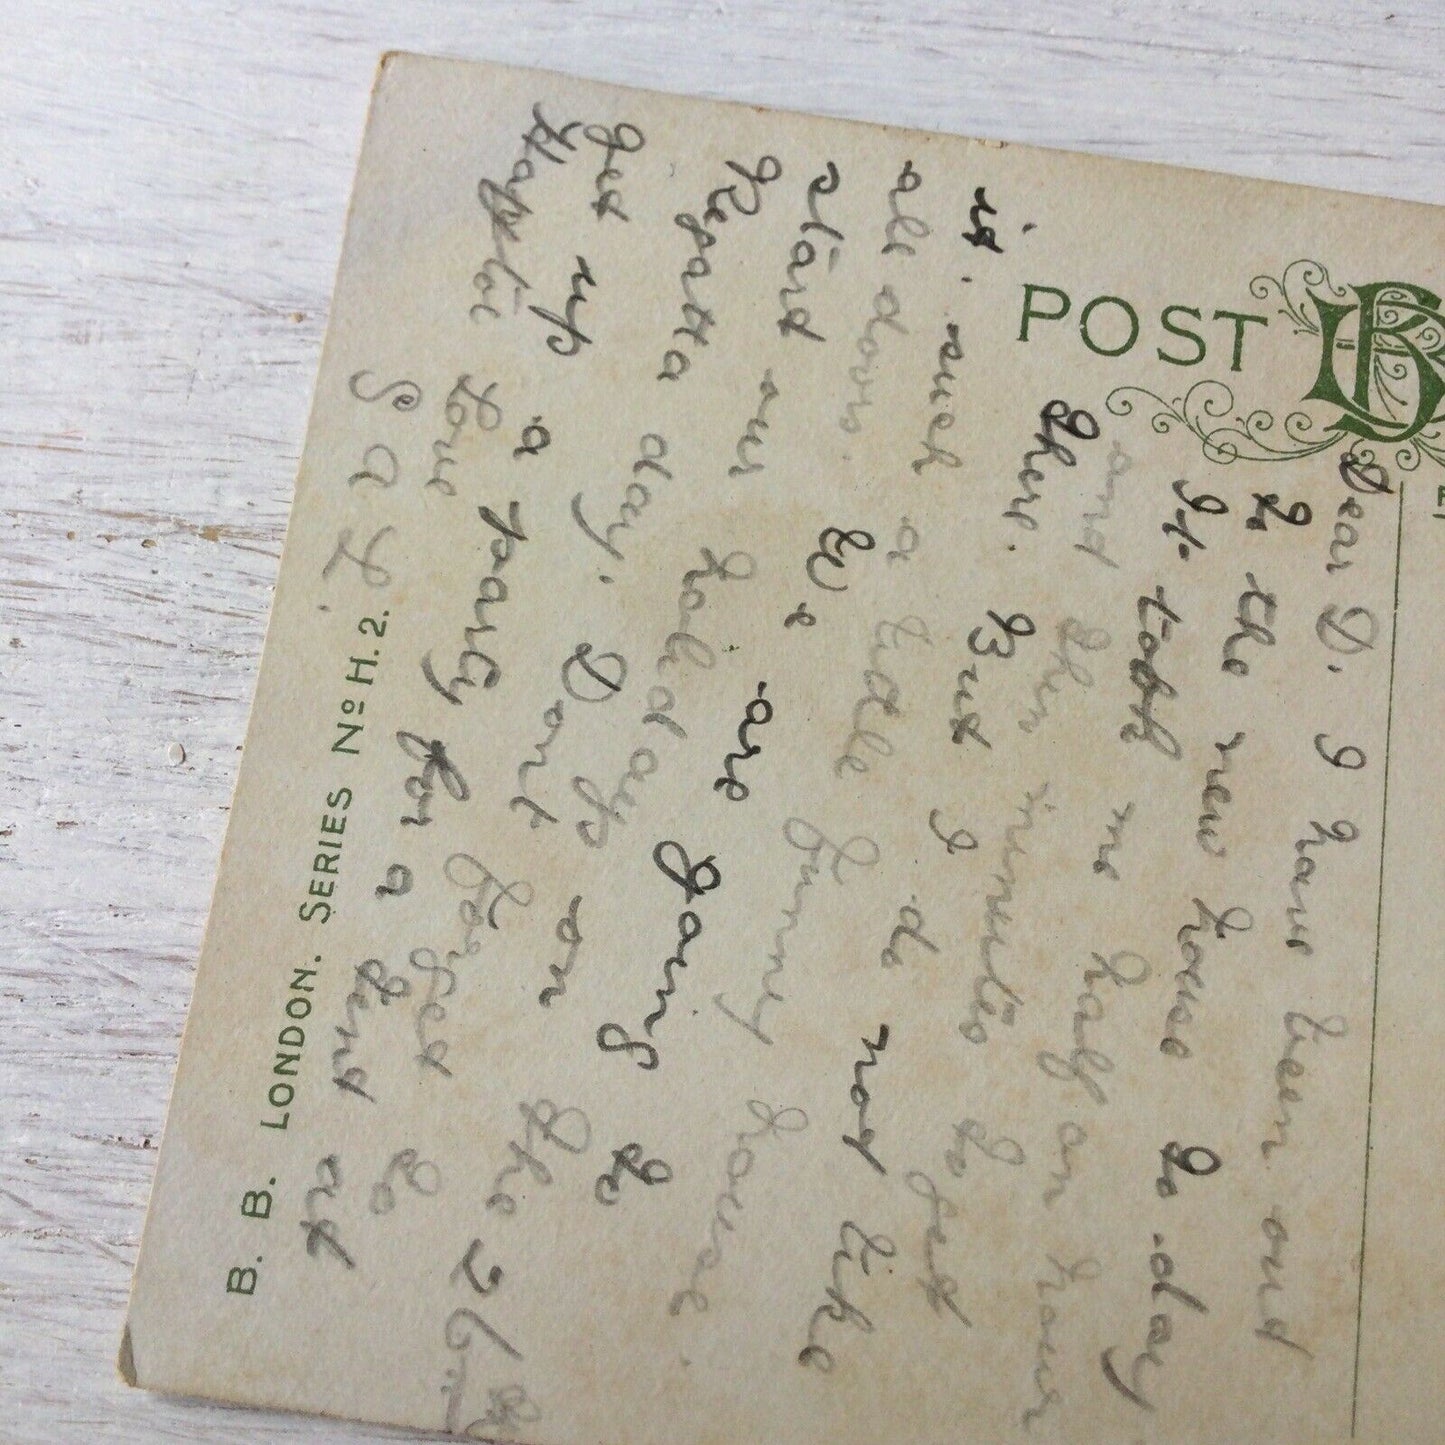 POST
Dear D. I have been out
to the new house to-day
It took me half an hour
and then minutes to get
there. But I do not like
it. such a little funney house.
all doors. We are going to
start our holidays on the 26
Regatta day. Dont forget to
get up a party for a tent at
Love
S A L.
B. B. LONDON. SERIES Nº H.2.